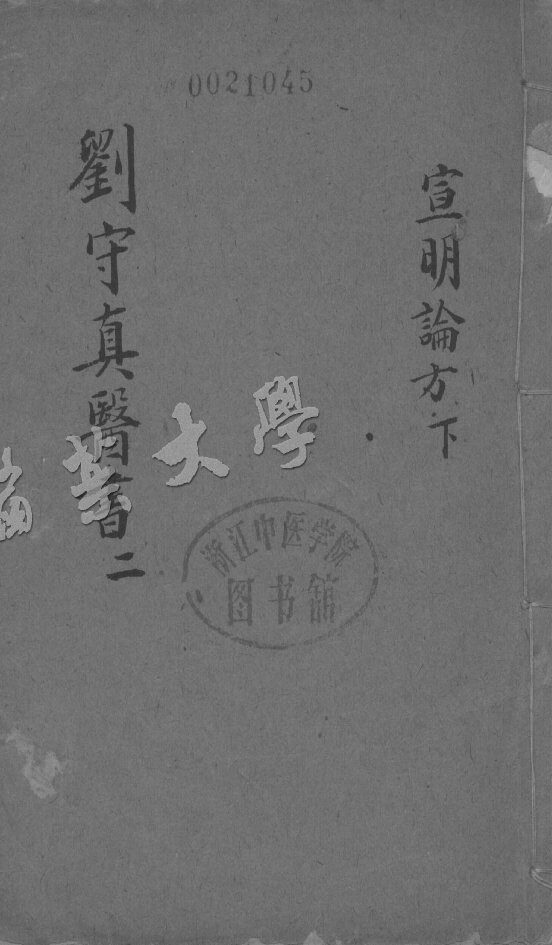 0021045
宣明論方下
劉守真醫書二
浙江中医学院
图书馆